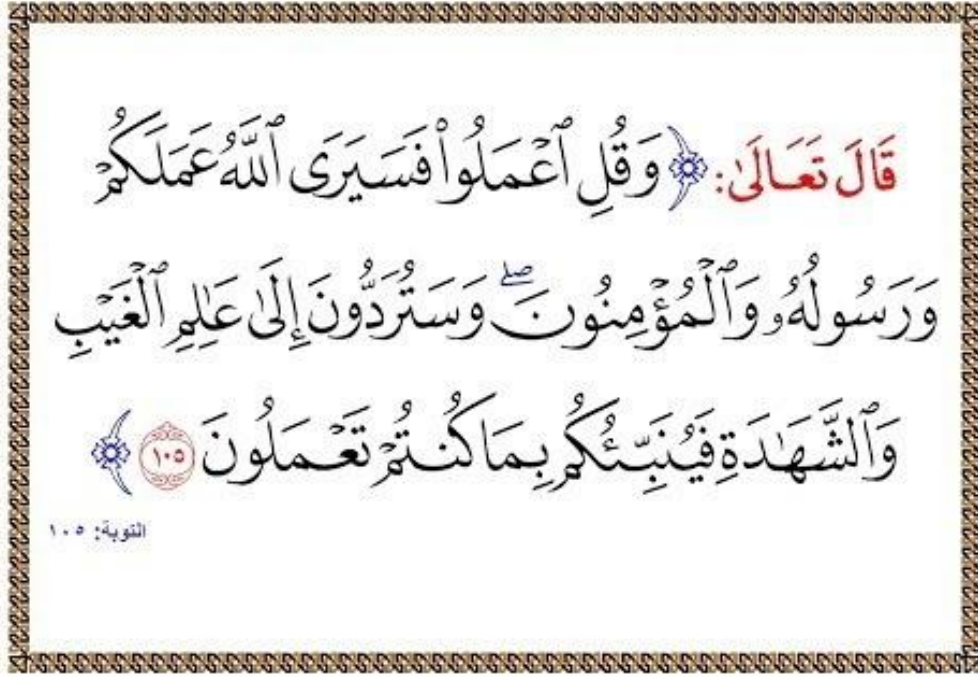 قَالَ تَعَالَىٰ: ﴿وَقُلِ ٱعۡمَلُواْ فَسَيَرَى ٱللَّهُ عَمَلَكُمۡ
وَرَسُولُهُۥ وَٱلۡمُؤۡمِنُونَۖ وَسَتُرَدُّونَ إِلَىٰ عَٰلِمِ ٱلۡغَيۡبِ
وَٱلشَّهَٰدَةِ فَيُنَبِّئُكُم بِمَا كُنتُمۡ تَعۡمَلُونَ ١٠٥﴾
التوبة: ١٠٥